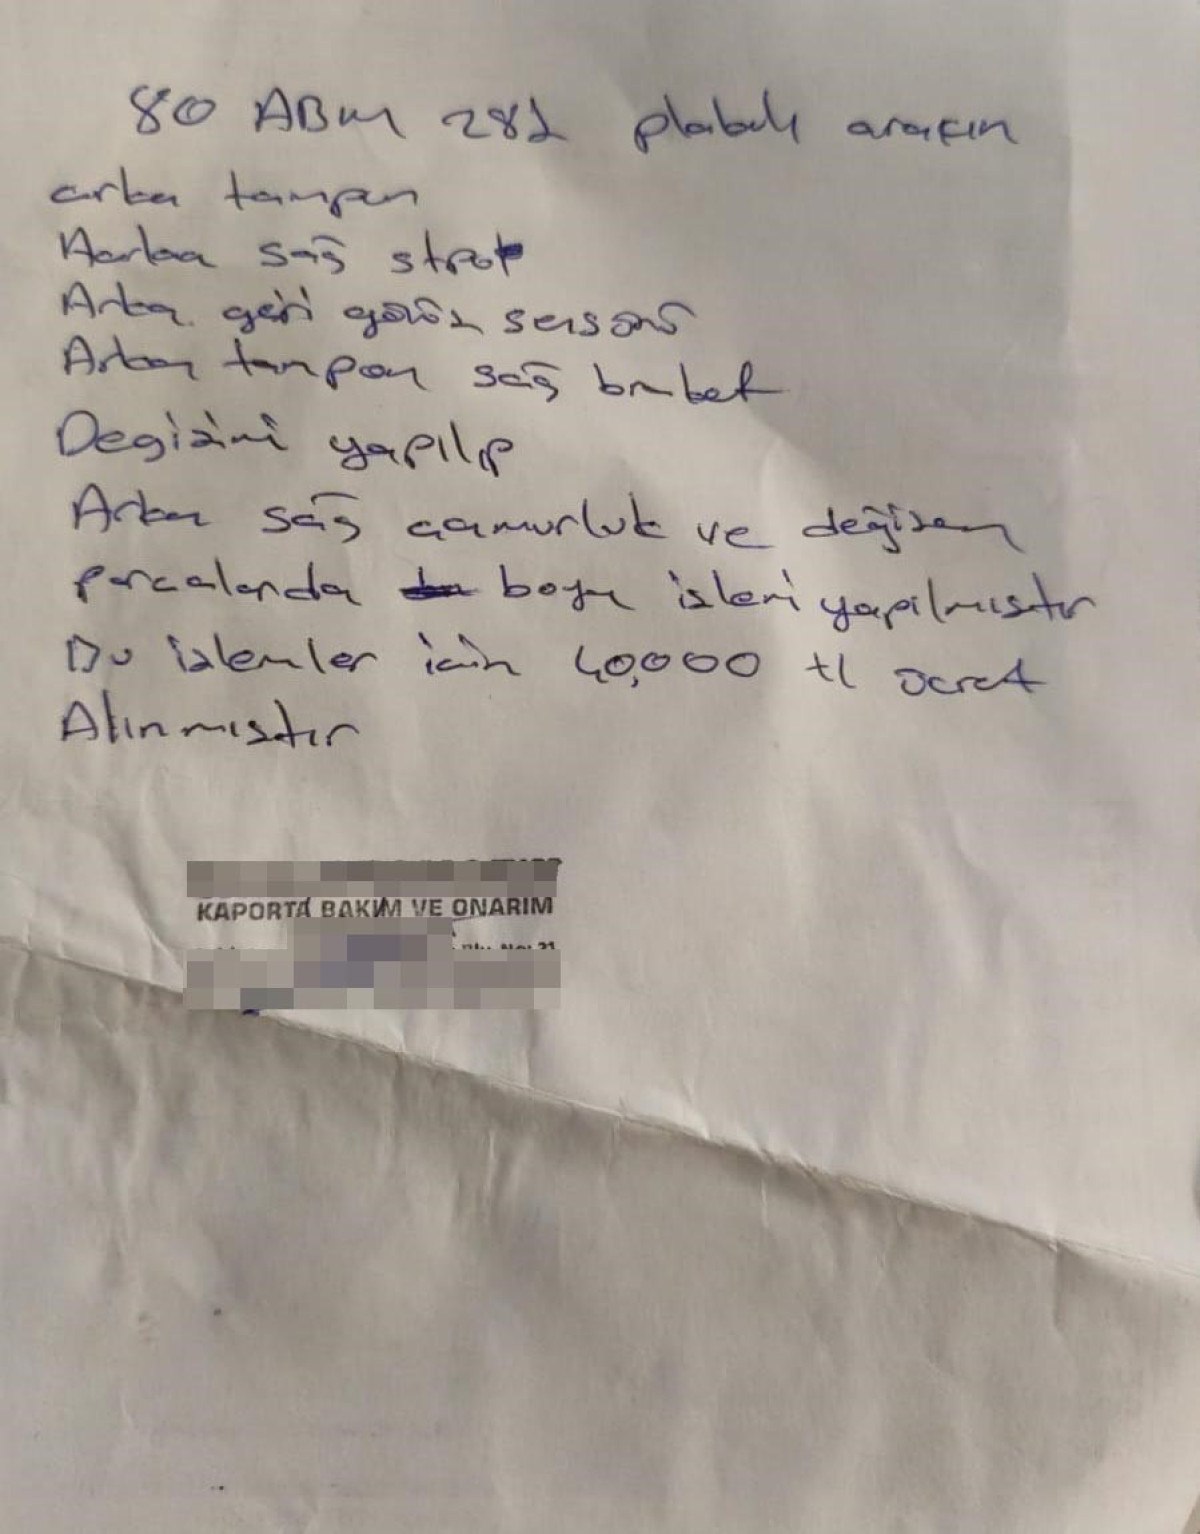 80 ABM 282 plakalı aracın
arka tampon
Aarka sağ strop
Arka geri görüş sensörü
Arka tampon sağ braket
Degişimi yapılıp
Arka sağ çamurluk ve değişen
parcalarda boya işleri yapılmıştır
Bu işlemler için 40,000 tl ücret
Alınmıştır
KAPORTA BAKIM VE ONARIM
No: 21